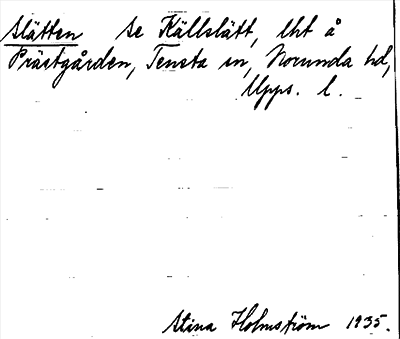 Slätten se Källslätt, lht å
Prästgården, Tensta sn, Norunda hd,
Upps. l.
Stina Holmström 1935.